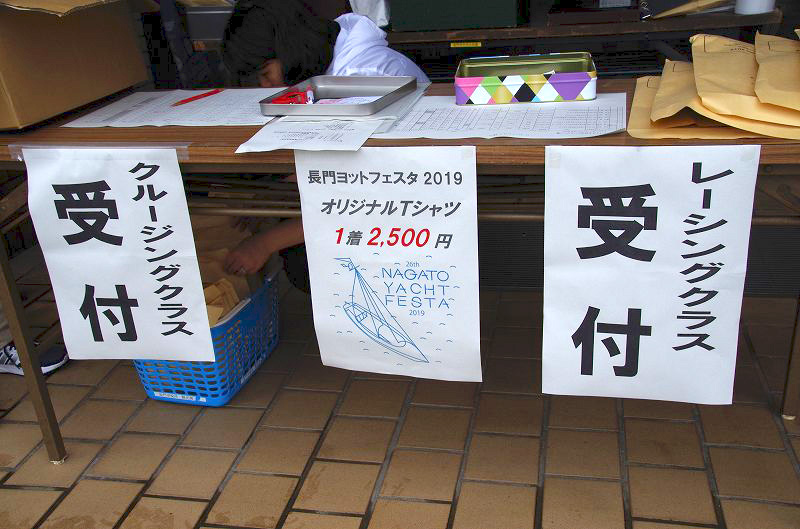 クルージングクラス
受付
長門ヨットフェスタ 2019
オリジナルTシャツ
1着 2,500 円
26th
NAGATO
YACHT
FESTA
2019
レーシングクラス
受付